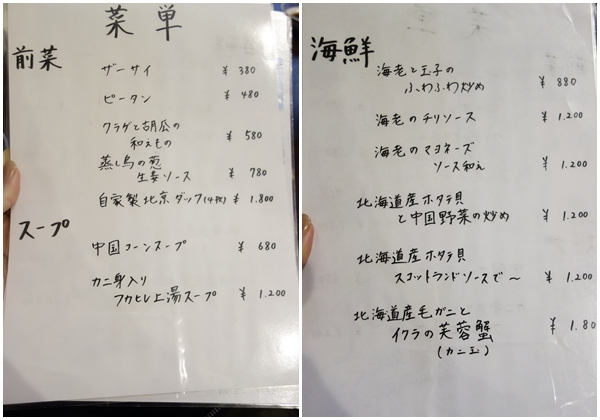 菜単
前菜
ザーサイ ¥380
ピータン ¥480
クラゲと胡瓜の
和えもの ¥580
蒸し鳥の葱
生姜ソース ¥780
自家製北京ダック(4枚) ¥1.800
スープ
中国コーンスープ ¥680
カニ身入り
フカヒレ上湯スープ ¥1.200
海鮮
海老と玉子の
ふわふわ炒め ¥880
海老のチリソース ¥1.200
海老のマヨネーズ
ソース和え ¥1.200
北海道産ホタテ貝
と中国野菜の炒め ¥1.200
北海道産ホタテ貝
スコットランドソースで〜 ¥1.200
北海道産毛ガニと
イクラの芙蓉蟹 ¥1.80
(カニ玉)